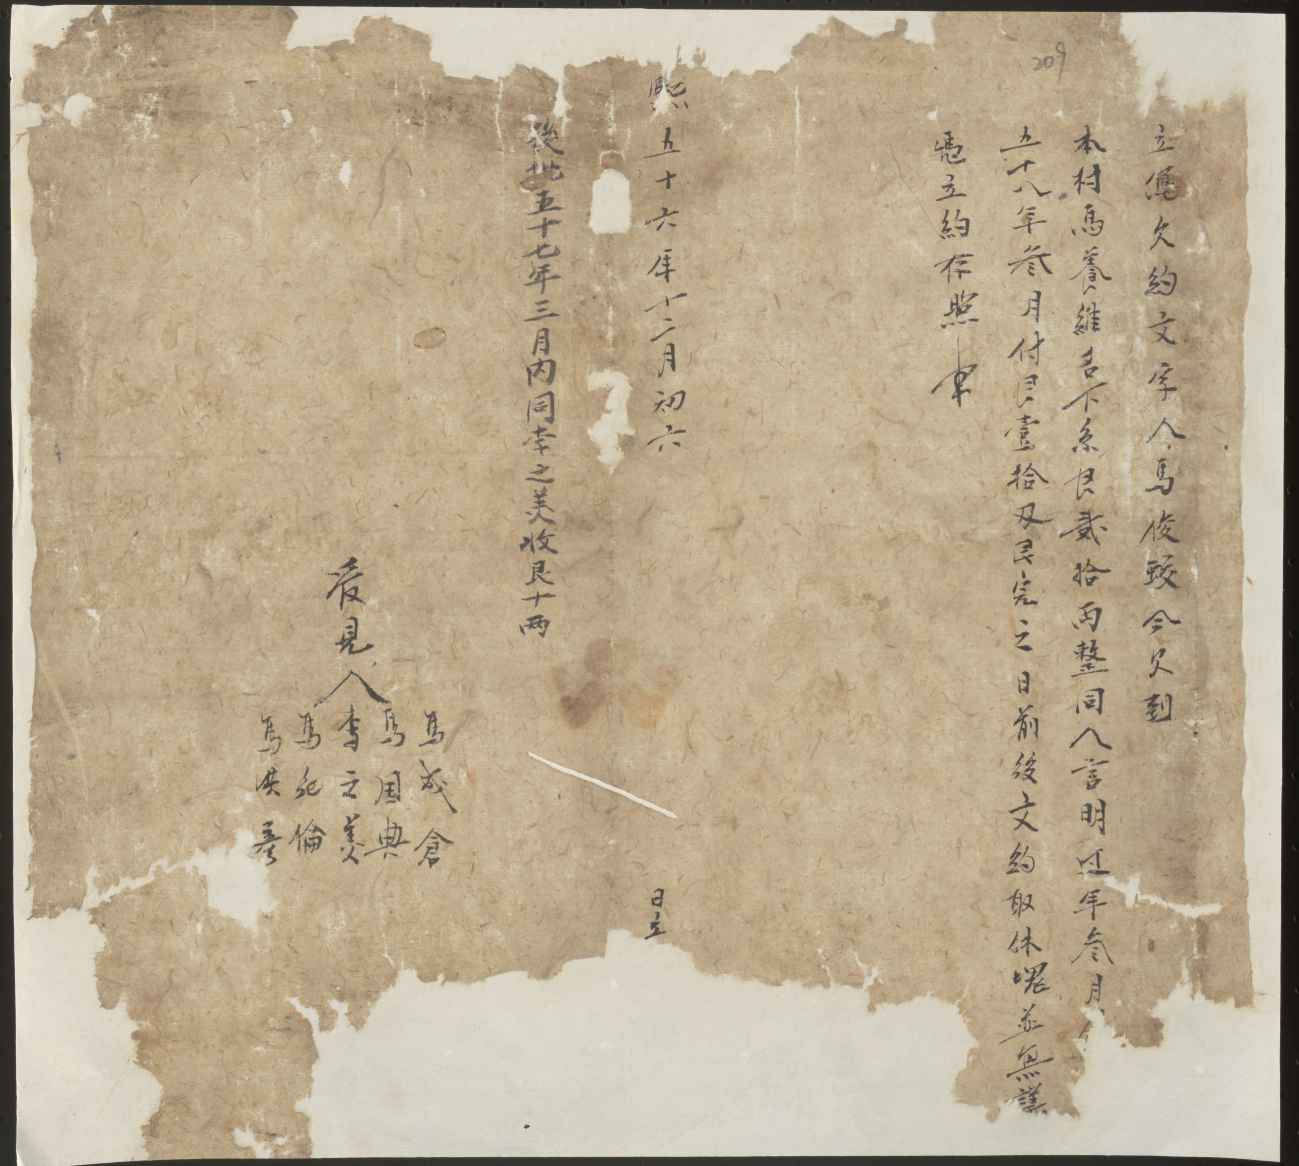 209
立寫欠約文字人馬俊蛟今欠到
本村馬養維名下系艮貳拾兩整同人言明过年叁月
五十八年叁月付艮壹拾刄艮完之日前後文約取休壞並無謊
憑立約存照 用
熙五十六年十二月初六 日立
後批五十七年三月内同李之美收艮十两
後見人
馬成倉
馬国典
李之美
馬倫
馬洪